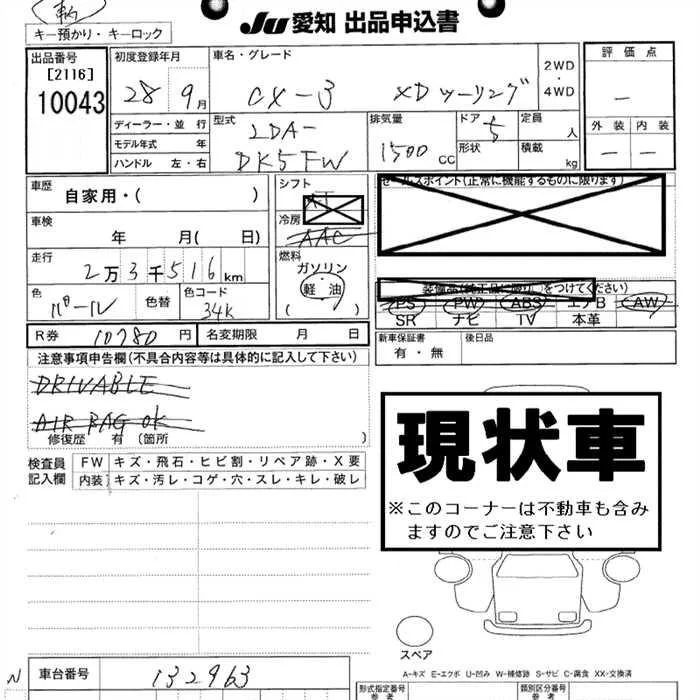 JU 愛知 出品申込書
キー預かり・キーロック
出品番号
[2116]
10043
初度登録年月
28年9月
車名・グレード
CX-3 XDツーリング
2WD・4WD
評価点
—
外装 内装
— —
ディーラー・並行
モデル年式 年
ハンドル 左・右
型式
LDA-
DK5FW
排気量
1500 CC
ドア 5
形状
定員 人
積載 kg
車歴 自家用・( )
シフト
AT
セールスポイント(正常に機能するものに限ります)
車検 年 月( 日)
冷房
AAC
走行 2万3千516km
燃料
ガソリン
軽油
( )
色 パール 色替 色コード 34K
装備品(純正品に限り○をつけてください)
PS PW ABS エアB AW
SR ナビ TV 本革
R券 10780円 名変期限 月 日
新車保証書
有・無
後日品
注意事項申告欄(不具合内容等は具体的に記入して下さい)
DRIVABLE
AIR BAG OK
修復歴 有(箇所 )
現状車
※このコーナーは不動車も含み
ますのでご注意下さい
検査員記入欄
FW キズ・飛石・ヒビ割・リペア跡・X要
内装 キズ・汚レ・コゲ・穴・スレ・キレ・破レ
スペア
A-キズ E-エクボ U-凹み W-補修跡 S-サビ C-腐食 XX-交換済
N
車台番号 132963
形式指定番号
参考
類別区分番号
参考